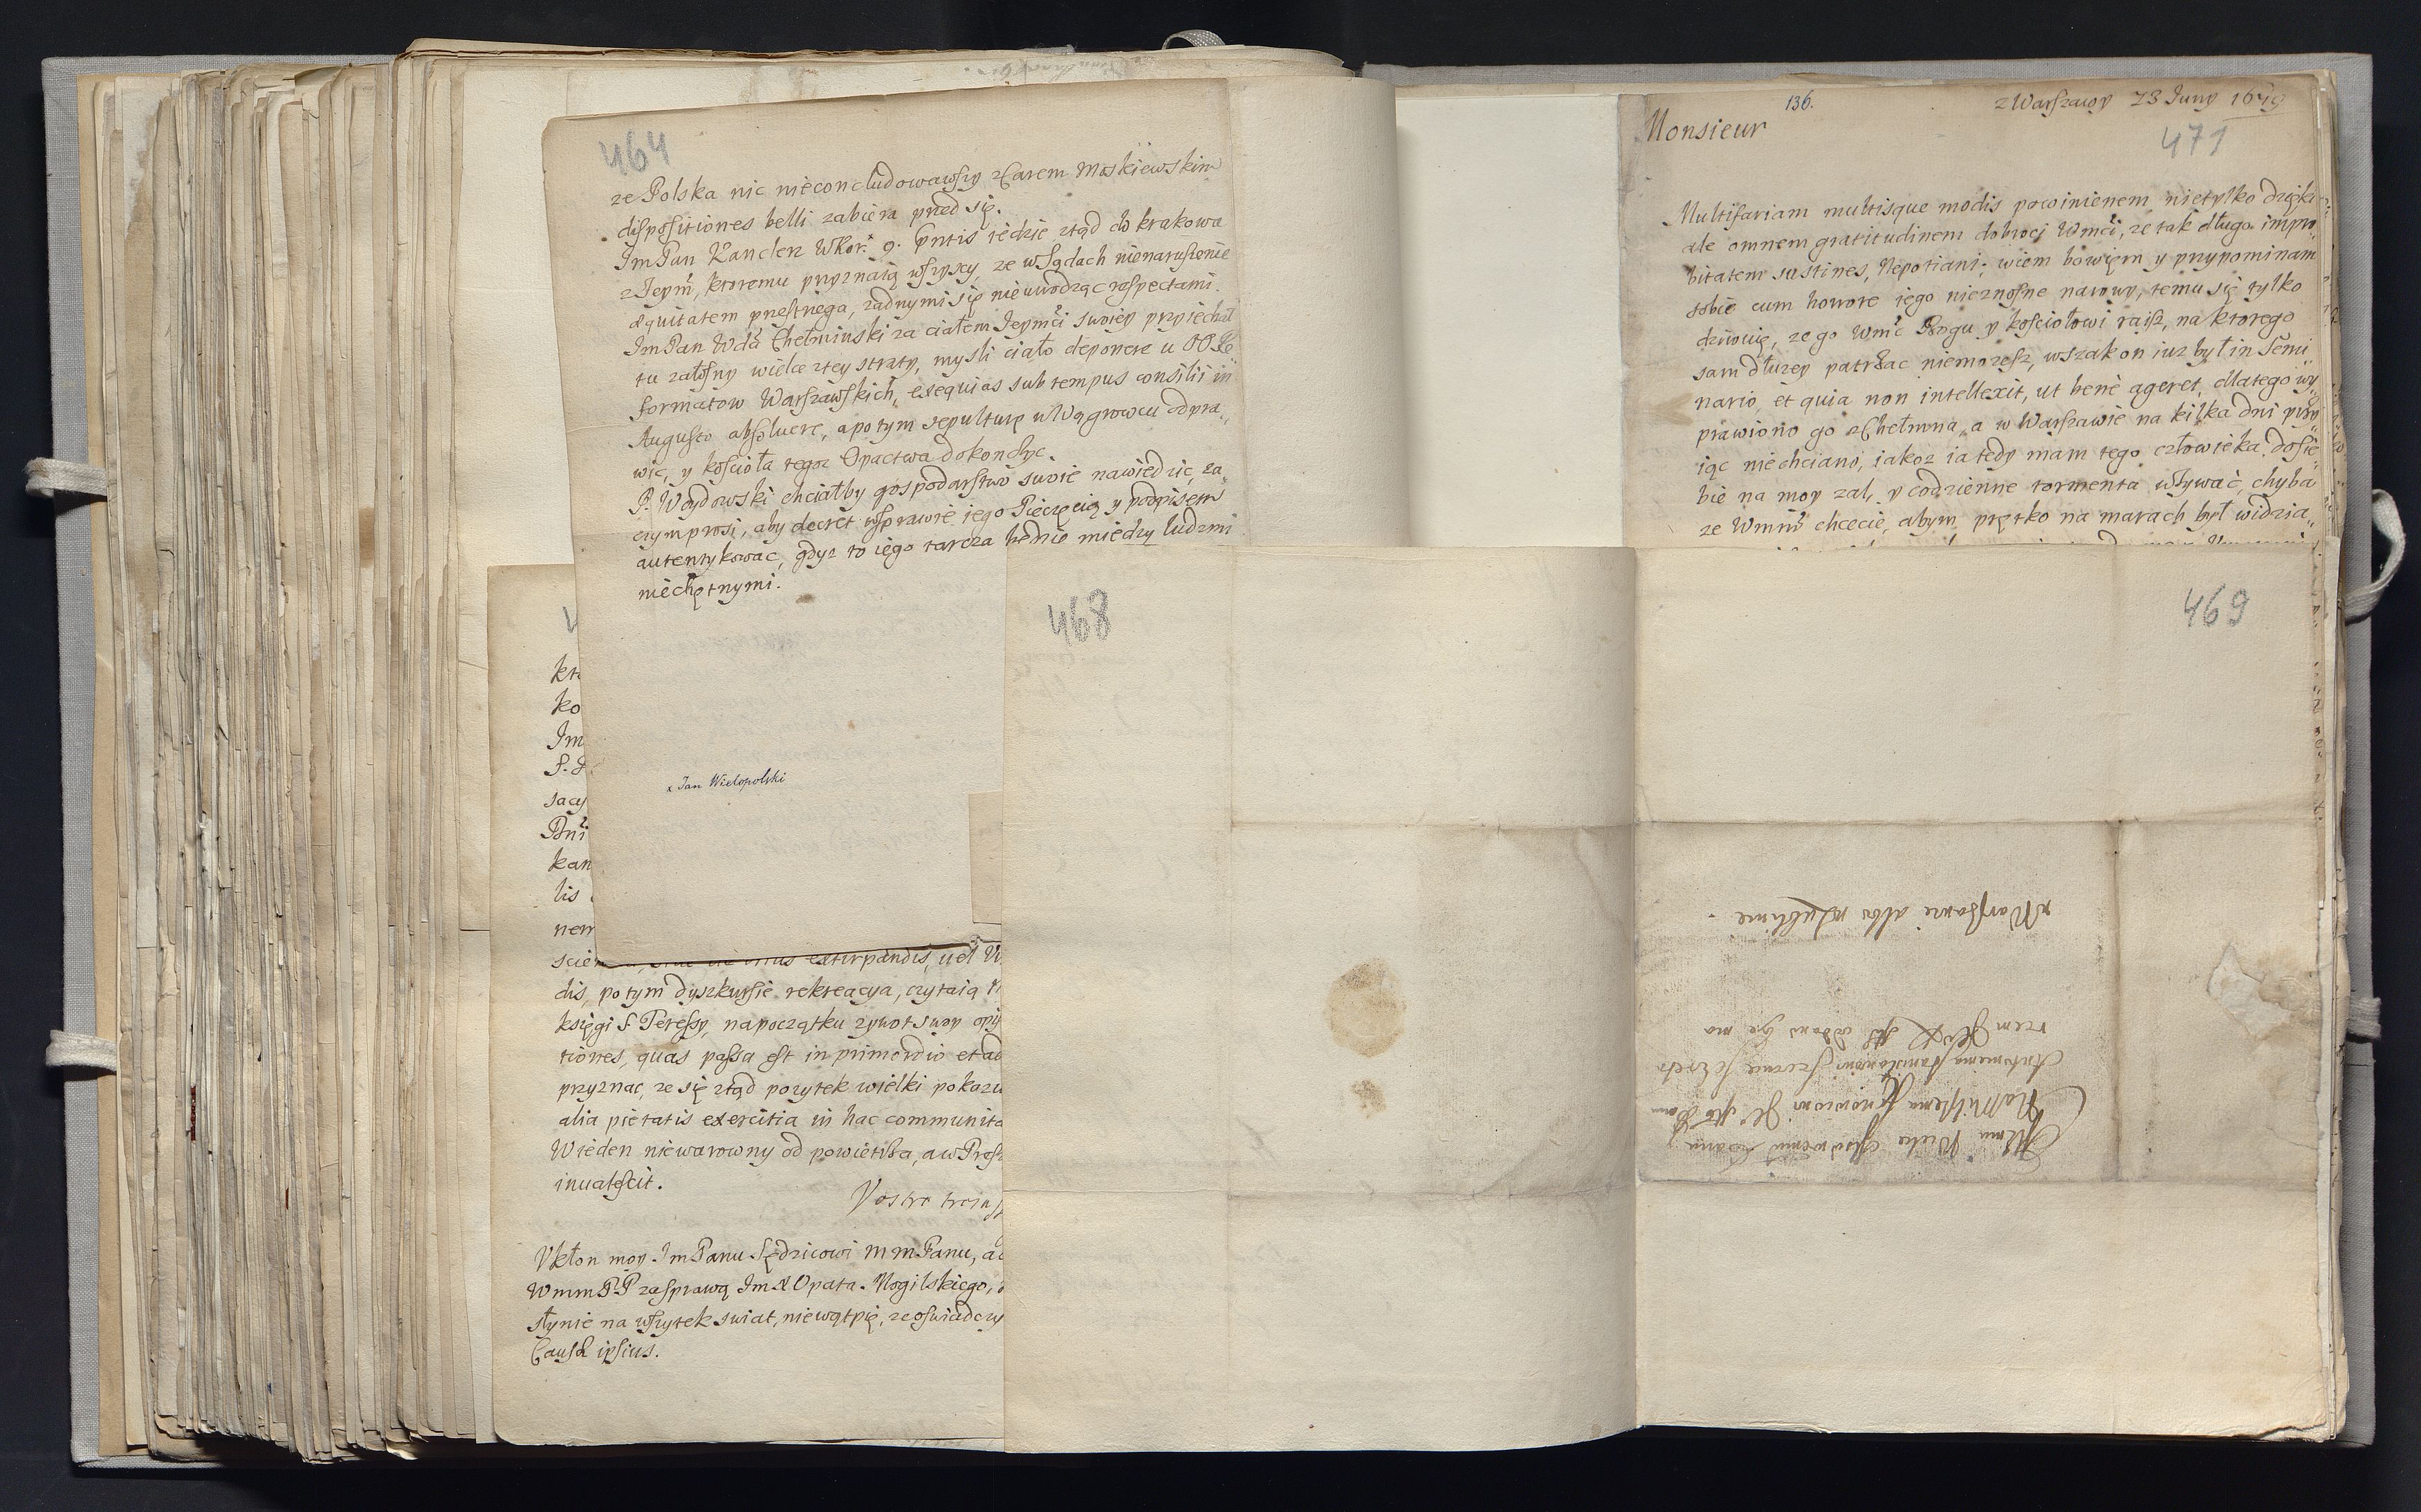 464
ze Polska nic nieconcludowawszy z Carem Moskiewskim
dispositiones belli zabiera przed się.
Im Pan Kanclerz WKor. 9. pntis iedzie ztąd do krakowa
z Ieym, ktoremu przyznaią wszyscy, ze w Sądach nienaruszenie
æquitatem przestrzega, zadnymi się nieuwodząc respectami.
Im Pan Wda Chełminski za ciałem Ieymci swoiey przyiechał
tu załosny wielce z tey straty, mysli ciało deponere u OO Re„
formatow Warszawskich, exequias sub tempus consilii in
Augusto absoluere, a potym sepulturę w Wągrowcu odpra„
wic, y kościoła tegoz Opactwa dokonczyc.
P. Woydowski chciałby gospodarstwo swoie nawiedzic, za„
czym prosi, aby decret w sprawie iego Pieczęcią y podpisem
autentykowac, gdyz to iego tarcza będzie miedzy ludzmi
niechętnymi.
x Jan Wielopolski
kt
ko
Im
S.
sacy
Pni
kan
lis
nem
extirpandis, uel
dis, potym dyszkursie rekreacya, czytaią
księgi S. Teressy, napoczątku zywot swoy opi
tiones, quas passa est in primordio et ad
przyznac, ze się ztąd pozytek wielki pokazu
alia pietatis exercitia in hac communita
Wieden niewarowny od powietrza, a w Pres
inualescit.
Vostre treis
Vkłon moy Im Panu Sędzicowi m m Panu, a
Wmm PP za sprawą Im X Opata Mogilskiego,
słynie na wszytek swiat, niewątpię, ze oswiadczy
Causæ ipsius.
468
136.
z Warszawy 23 Juny 1679
Monsieur
471
Multifariam multisque modis powinienem nietylko dzięki
ale omnem gratitudinem dobroci Wmci, ze tak długo impro„
bitatem sustines, Nepotiani; wiem bowiem y przypominam
sobie cum horrore iego nieznosne narowy, temu się tylko
dziwuię, ze go Wmc Bogu y kościołowi raisz, na ktorego
sam dłuzey patrzac niemozesz, wszak on iuz był in Semi„
nario, et quia non intellexit, ut benè ageret, dlatego wy„
prawiono go z Chełmna, a w Warszawie na kilka dni przy„
iąc niechciano, iakoz ia tedy mam tego człowieka do sie„
bie na moy zal, y codzienne tormenta wzywać, chyba
ze Wmm chcecie, abym prętko na marach był widzia„
469
w Warszawie albo w Lublinie